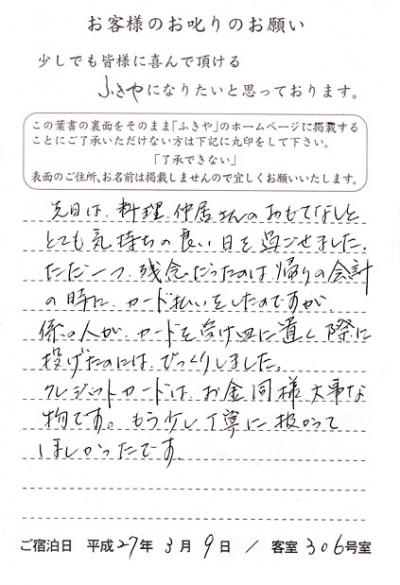 お客様のお叱りのお願い
少しでも皆様に喜んで頂ける
ふきやになりたいと思っております。
この葉書の裏面をそのまま「ふきや」のホームページに掲載する
ことにご了承いただけない方は下記に丸印をして下さい。
「了承できない」
表面のご住所、お名前は掲載しませんので宜しくお願いいたします。
先日は、料理、仲居さんのおもてなしと
とても気持ちの良い日を過ごせました。
ただ一つ、残念だったのは帰りの会計
の時に、カード払いをしたのですが、
係の人が、カードを受け皿に置く際に
投げたのには、びっくりしました。
クレジットカードは、お金同様大事な
物です。もう少し丁寧に扱って
ほしかったです。
ご宿泊日 平成27年 3月 9日 / 客室 306号室